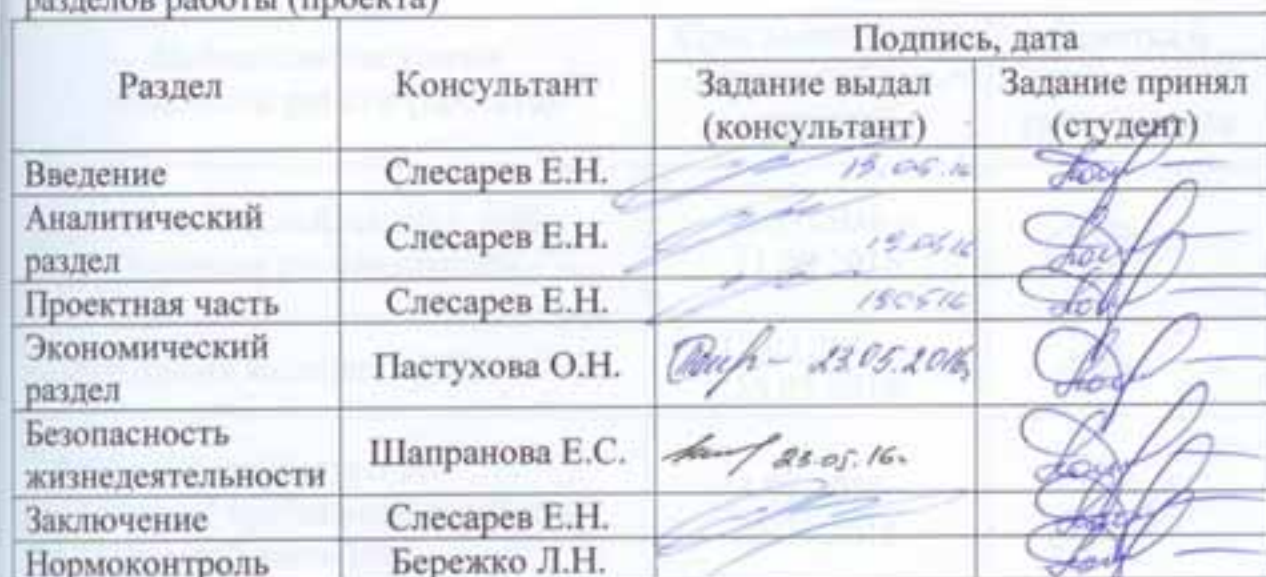 разделов работы (проекта)
Раздел
Консультант
Подпись, дата
Задание выдал (консультант)
Задание принял (студент)
Введение Слесарев Е.Н. 19.05.16
Аналитический раздел Слесарев Е.Н. 19.05.16
Проектная часть Слесарев Е.Н. 190516
Экономический раздел Пастухова О.Н. 23.05.2016
Безопасность жизнедеятельности Шапранова Е.С. 23.05.16.
Заключение Слесарев Е.Н.
Нормоконтроль Бережко Л.Н.